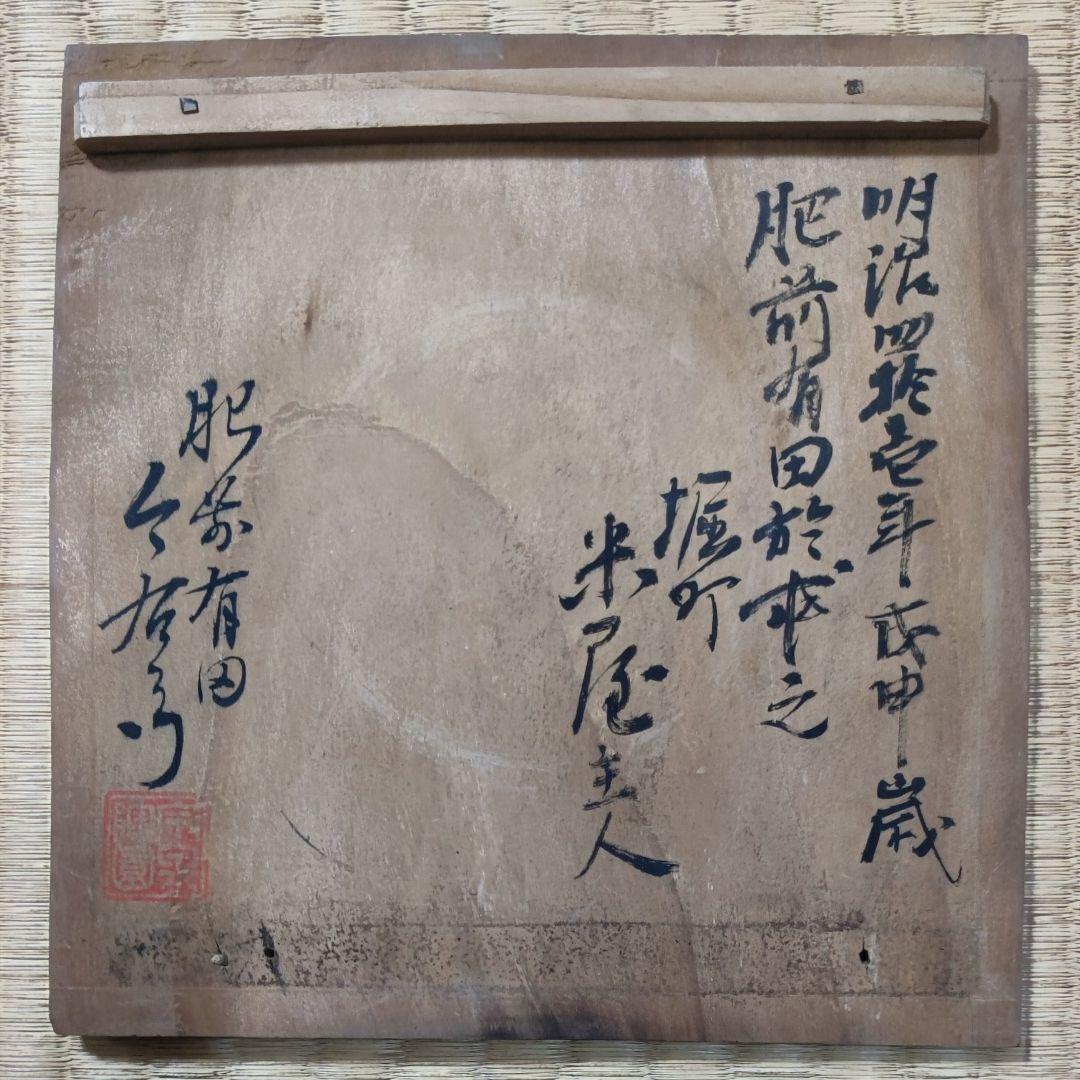 明治四拾壱年戊申歳
肥前有田於求之
堀町
米屋主人
肥前有田
今右衛門